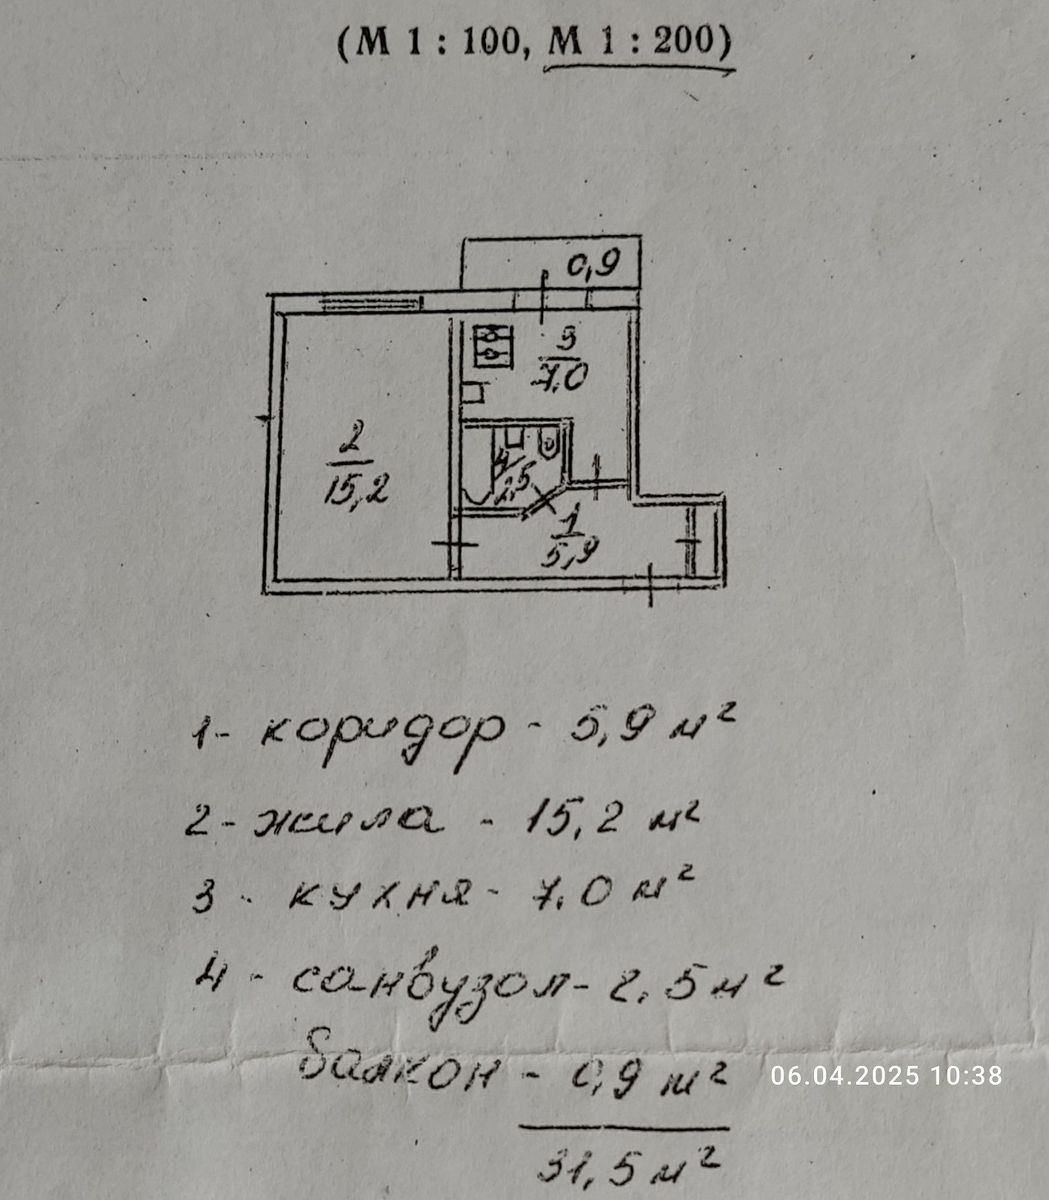 (М 1 : 100, М 1 : 200)
0,9
3
7,0
2
15,2
4
2,5
1
5,9
1- коридор - 5,9 м²
2- жила - 15,2 м²
3 - кухня - 7,0 м²
4 - санвузол - 2,5 м²
балкон - 0,9 м²
06.04.2025 10:38
31,5 м²